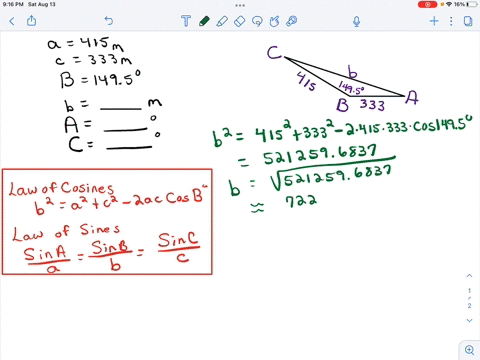 9:16 PM Sat Aug 13
16%
a = 415 m
c = 333 m
B = 149.5°
b = ____ m
A = ____ °
C = ____ °
C
b
415
149.5°
B
333
A
b² = 415² + 333² - 2·415·333·cos149.5°
= 521259.6837
b = √521259.6837
≈ 722
Law of Cosines
b² = a² + c² - 2ac CosB°
Law of Sines
SinA/a = SinB/b = SinC/c
1
2